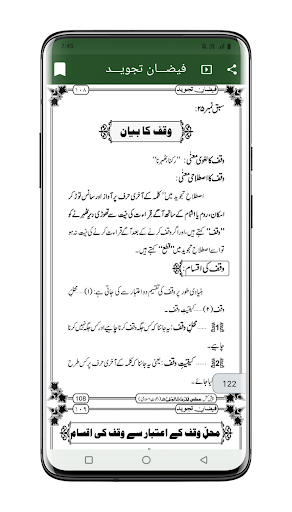 7:45
فیضان تجوید
۱۰۸ فیضان تجوید
سبق نمبر:۲۵
وقف کا بیان
وقف کا لغوی معنٰی: "رکنا ٹھہرنا"
وقف کا اصطلاحی معنٰی:
اصطلاح تجوید میں "کلمہ کے آخری حرف پر آواز اور سانس توڑ کر
اسکان، روم یا اشمام کے ساتھ آگے قراءت کی نیت سے تھوڑی دیر ٹھہرنے کو
"وقف" کہتے ہیں، اور اگر وقف کرنے کے بعد آگے قراءت کرنے کی نیت نہ ہو
تو اسے اصطلاح تجوید میں "قطع" کہتے ہیں۔
وقف کی اقسام:
بنیادی طور پر وقف کی تقسیم دو اعتبار سے کی جاتی ہے: (۱) محل
وقف (۲) کیفیت وقف۔
1 محل وقف: یہ جاننا کہ کس جگہ وقف کرنا چاہیے اور کس جگہ نہیں کرنا
چاہیے۔
2 کیفیت وقف: یعنی یہ جاننا کہ کلمہ کے آخری حرف پر کس طرح
کیا جائے۔
122
108
۱۰۹ فیضان تجوید
محل وقف کے اعتبار سے وقف کی اقسام